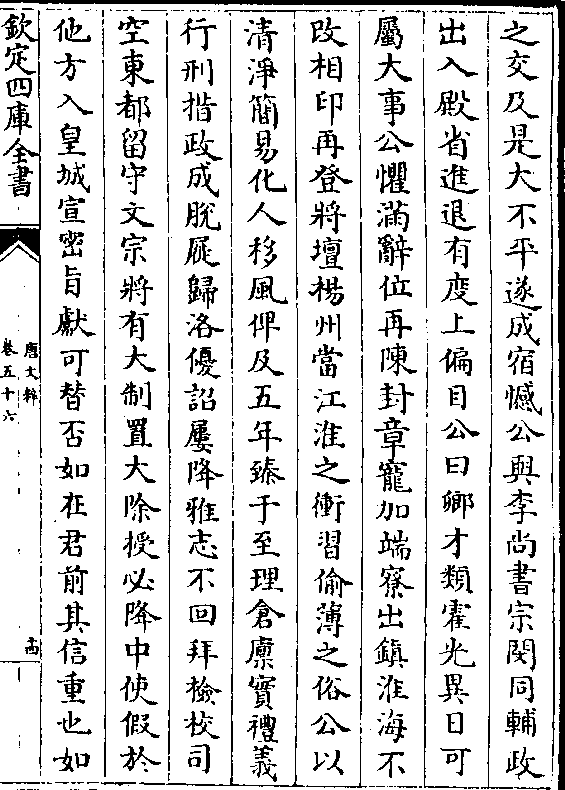 之交及是大不平遂成宿憾公與李尚書宗閔同輔政
出入殿省進退有度上偏目公曰卿才類霍光異日可
屬大事公懼滿辭位再陳封章寵加端寮出鎮淮海不
改相印再登將壇楊州當江淮之衝習偷薄之俗公以
清淨簡易化人移風俾及五年臻于至理倉廪實禮義
行刑措政成脫屣歸洛優詔屢降雅志不回拜檢校司
空東都留守文宗將有大制置大除授必降中使假於
他方入皇城宣密旨獻可替否如在君前其信重也如
欽定四庫全書
唐文粹
卷五十六